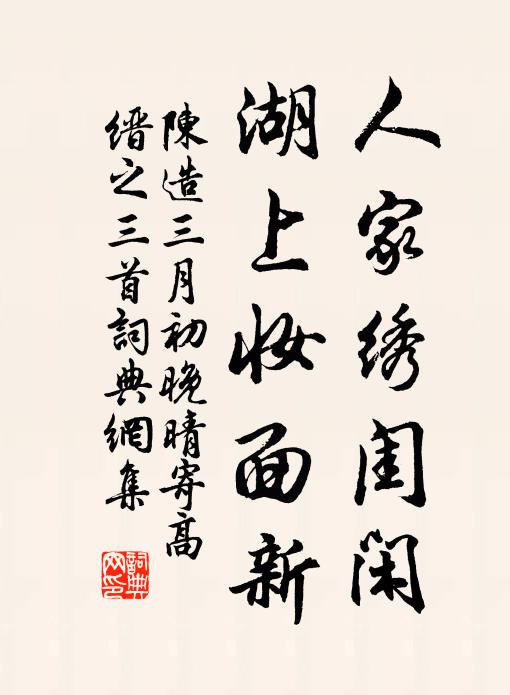 人家绣闺闲
湖上妆面新
陳造三月初晚晴寄高
缙之三首詞典網集
詞典
网印